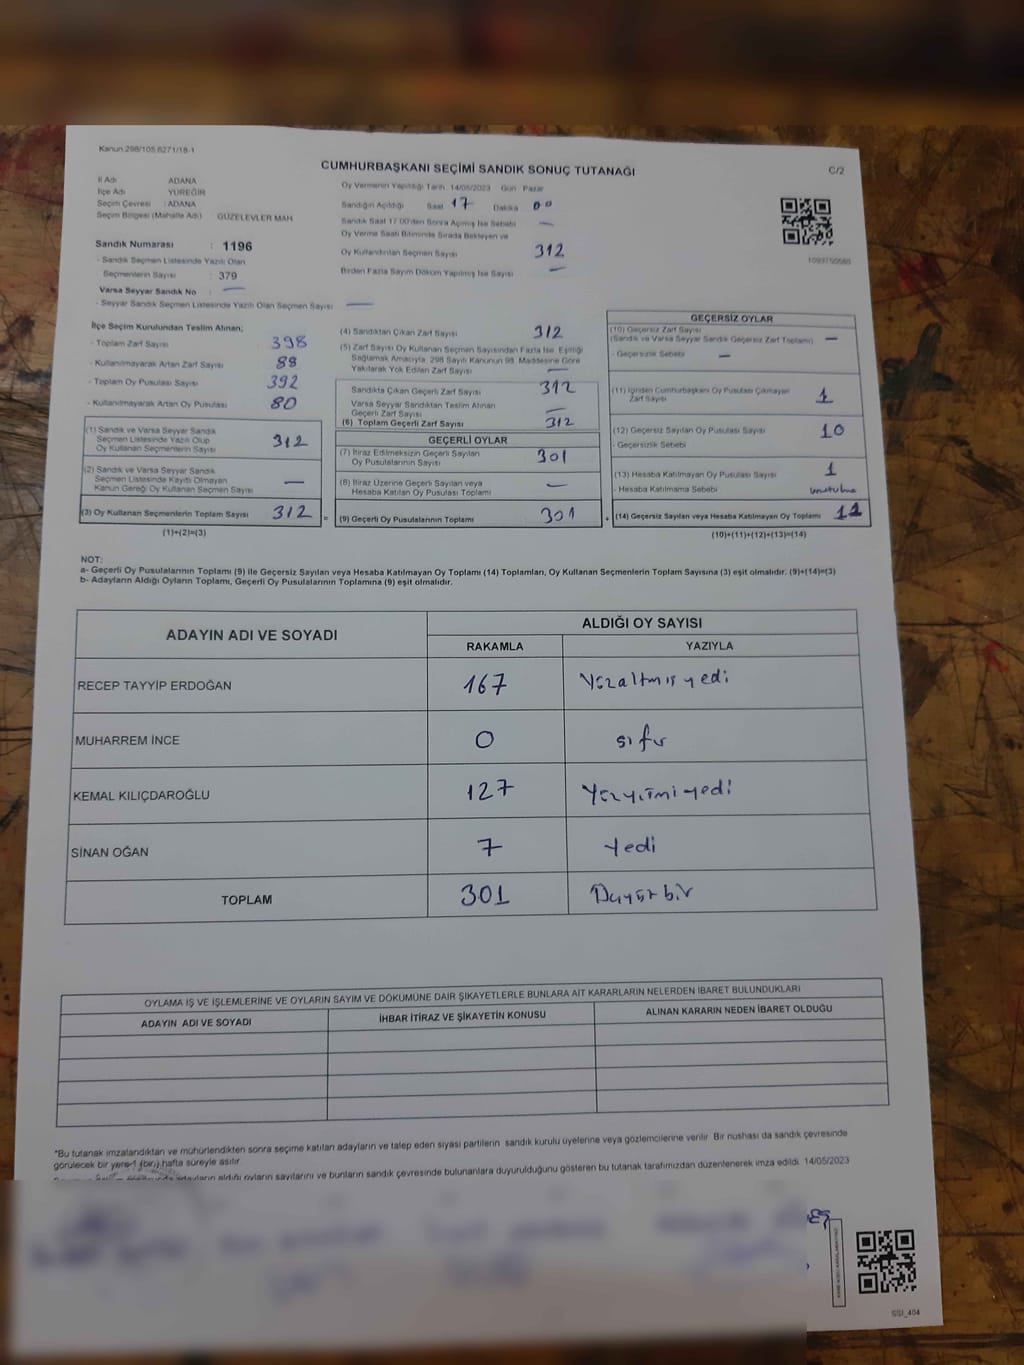 Kanun 298/105 6271/18-1
CUMHURBAŞKANI SEÇİMİ SANDIK SONUÇ TUTANAĞI
C/2
İl Adı ADANA
İlçe Adı YÜREĞİR
Seçim Çevresi : ADANA
Seçim Bölgesi (Mahalle Adı) GÜZELEVLER MAH
Oy Vermenin Yapıldığı Tarih 14/05/2023 Gün Pazar
Sandığın Açıldığı Saat 17 Dakika 00
Sandık Saat 17:00'den Sonra Açılmış İse Sebebi —
Oy Verme Saati Bitiminde Sırada Bekleyen ve
Oy Kullandırılan Seçmen Sayısı 312
Birden Fazla Sayım Döküm Yapılmış İse Sayısı —
1093750580
Sandık Numarası : 1196
- Sandık Seçmen Listesinde Yazılı Olan
Seçmenlerin Sayısı : 379
Varsa Seyyar Sandık No : —
- Seyyar Sandık Seçmen Listesinde Yazılı Olan Seçmen Sayısı : —
İlçe Seçim Kurulundan Teslim Alınan;
- Toplam Zarf Sayısı 398
- Kullanılmayarak Artan Zarf Sayısı 88
- Toplam Oy Pusulası Sayısı 392
- Kullanılmayarak Artan Oy Pusulası 80
(1) Sandık ve Varsa Seyyar Sandık
Seçmen Listesinde Yazılı Olup
Oy Kullanan Seçmenlerin Sayısı 312
(2) Sandık ve Varsa Seyyar Sandık
Seçmen Listesinde Kayıtlı Olmayan
Kanun Gereği Oy Kullanan Seçmen Sayısı —
(3) Oy Kullanan Seçmenlerin Toplam Sayısı 312
(1)+(2)=(3)
(4) Sandıktan Çıkan Zarf Sayısı 312
(5) Zarf Sayısı Oy Kullanan Seçmen Sayısından Fazla İse, Eşitliği
Sağlamak Amacıyla, 298 Sayılı Kanunun 98. Maddesine Göre
Yakılarak Yok Edilen Zarf Sayısı —
Sandıkta Çıkan Geçerli Zarf Sayısı 312
Varsa Seyyar Sandıktan Teslim Alınan
Geçerli Zarf Sayısı —
(6) Toplam Geçerli Zarf Sayısı 312
GEÇERLİ OYLAR
(7) İtiraz Edilmeksizin Geçerli Sayılan
Oy Pusulalarının Sayısı 301
(8) İtiraz Üzerine Geçerli Sayılan veya
Hesaba Katılan Oy Pusulası Toplamı —
= (9) Geçerli Oy Pusulalarının Toplamı 301
GEÇERSİZ OYLAR
(10) Geçersiz Zarf Sayısı
(Sandık ve Varsa Seyyar Sandık Geçersiz Zarf Toplamı) —
- Geçersizlik Sebebi —
(11) İçinden Cumhurbaşkanı Oy Pusulası Çıkmayan
Zarf Sayısı 1
(12) Geçersiz Sayılan Oy Pusulası Sayısı 10
- Geçersizlik Sebebi
(13) Hesaba Katılmayan Oy Pusulası Sayısı 1
- Hesaba Katılmama Sebebi unutulma
+ (14) Geçersiz Sayılan veya Hesaba Katılmayan Oy Toplamı
(10)+(11)+(12)+(13)=(14)
NOT:
a- Geçerli Oy Pusulalarının Toplamı (9) ile Geçersiz Sayılan veya Hesaba Katılmayan Oy Toplamı (14) Toplamları, Oy Kullanan Seçmenlerin Toplam Sayısına (3) eşit olmalıdır. (9)+(14)=(3)
b- Adayların Aldığı Oyların Toplamı, Geçerli Oy Pusulalarının Toplamına (9) eşit olmalıdır.
ADAYIN ADI VE SOYADI ALDIĞI OY SAYISI
RAKAMLA YAZIYLA
RECEP TAYYİP ERDOĞAN 167 Yüzaltmış yedi
MUHARREM İNCE 0 sıfır
KEMAL KILIÇDAROĞLU 127 Yüzyirmi yedi
SİNAN OĞAN 7 Yedi
TOPLAM 301 Üçyüz bir
OYLAMA İŞ VE İŞLEMLERİNE VE OYLARIN SAYIM VE DÖKÜMÜNE DAİR ŞİKAYETLERLE BUNLARA AİT KARARLARIN NELERDEN İBARET BULUNDUKLARI
ADAYIN ADI VE SOYADI İHBAR İTİRAZ VE ŞİKAYETİN KONUSU ALINAN KARARIN NEDEN İBARET OLDUĞU
*Bu tutanak imzalandıktan ve mühürlendikten sonra seçime katılan adayların ve talep eden siyasi partilerin sandık kurulu üyelerine veya gözlemcilerine verilir. Bir nüshası da sandık çevresinde
görülecek bir yere 1 (bir) hafta süreyle asılır.
adayların aldığı oyların sayılarını ve bunların sandık çevresinde bulunanlara duyurulduğunu gösteren bu tutanak tarafımızdan düzenlenerek imza edildi. 14/05/2023
SSI_404